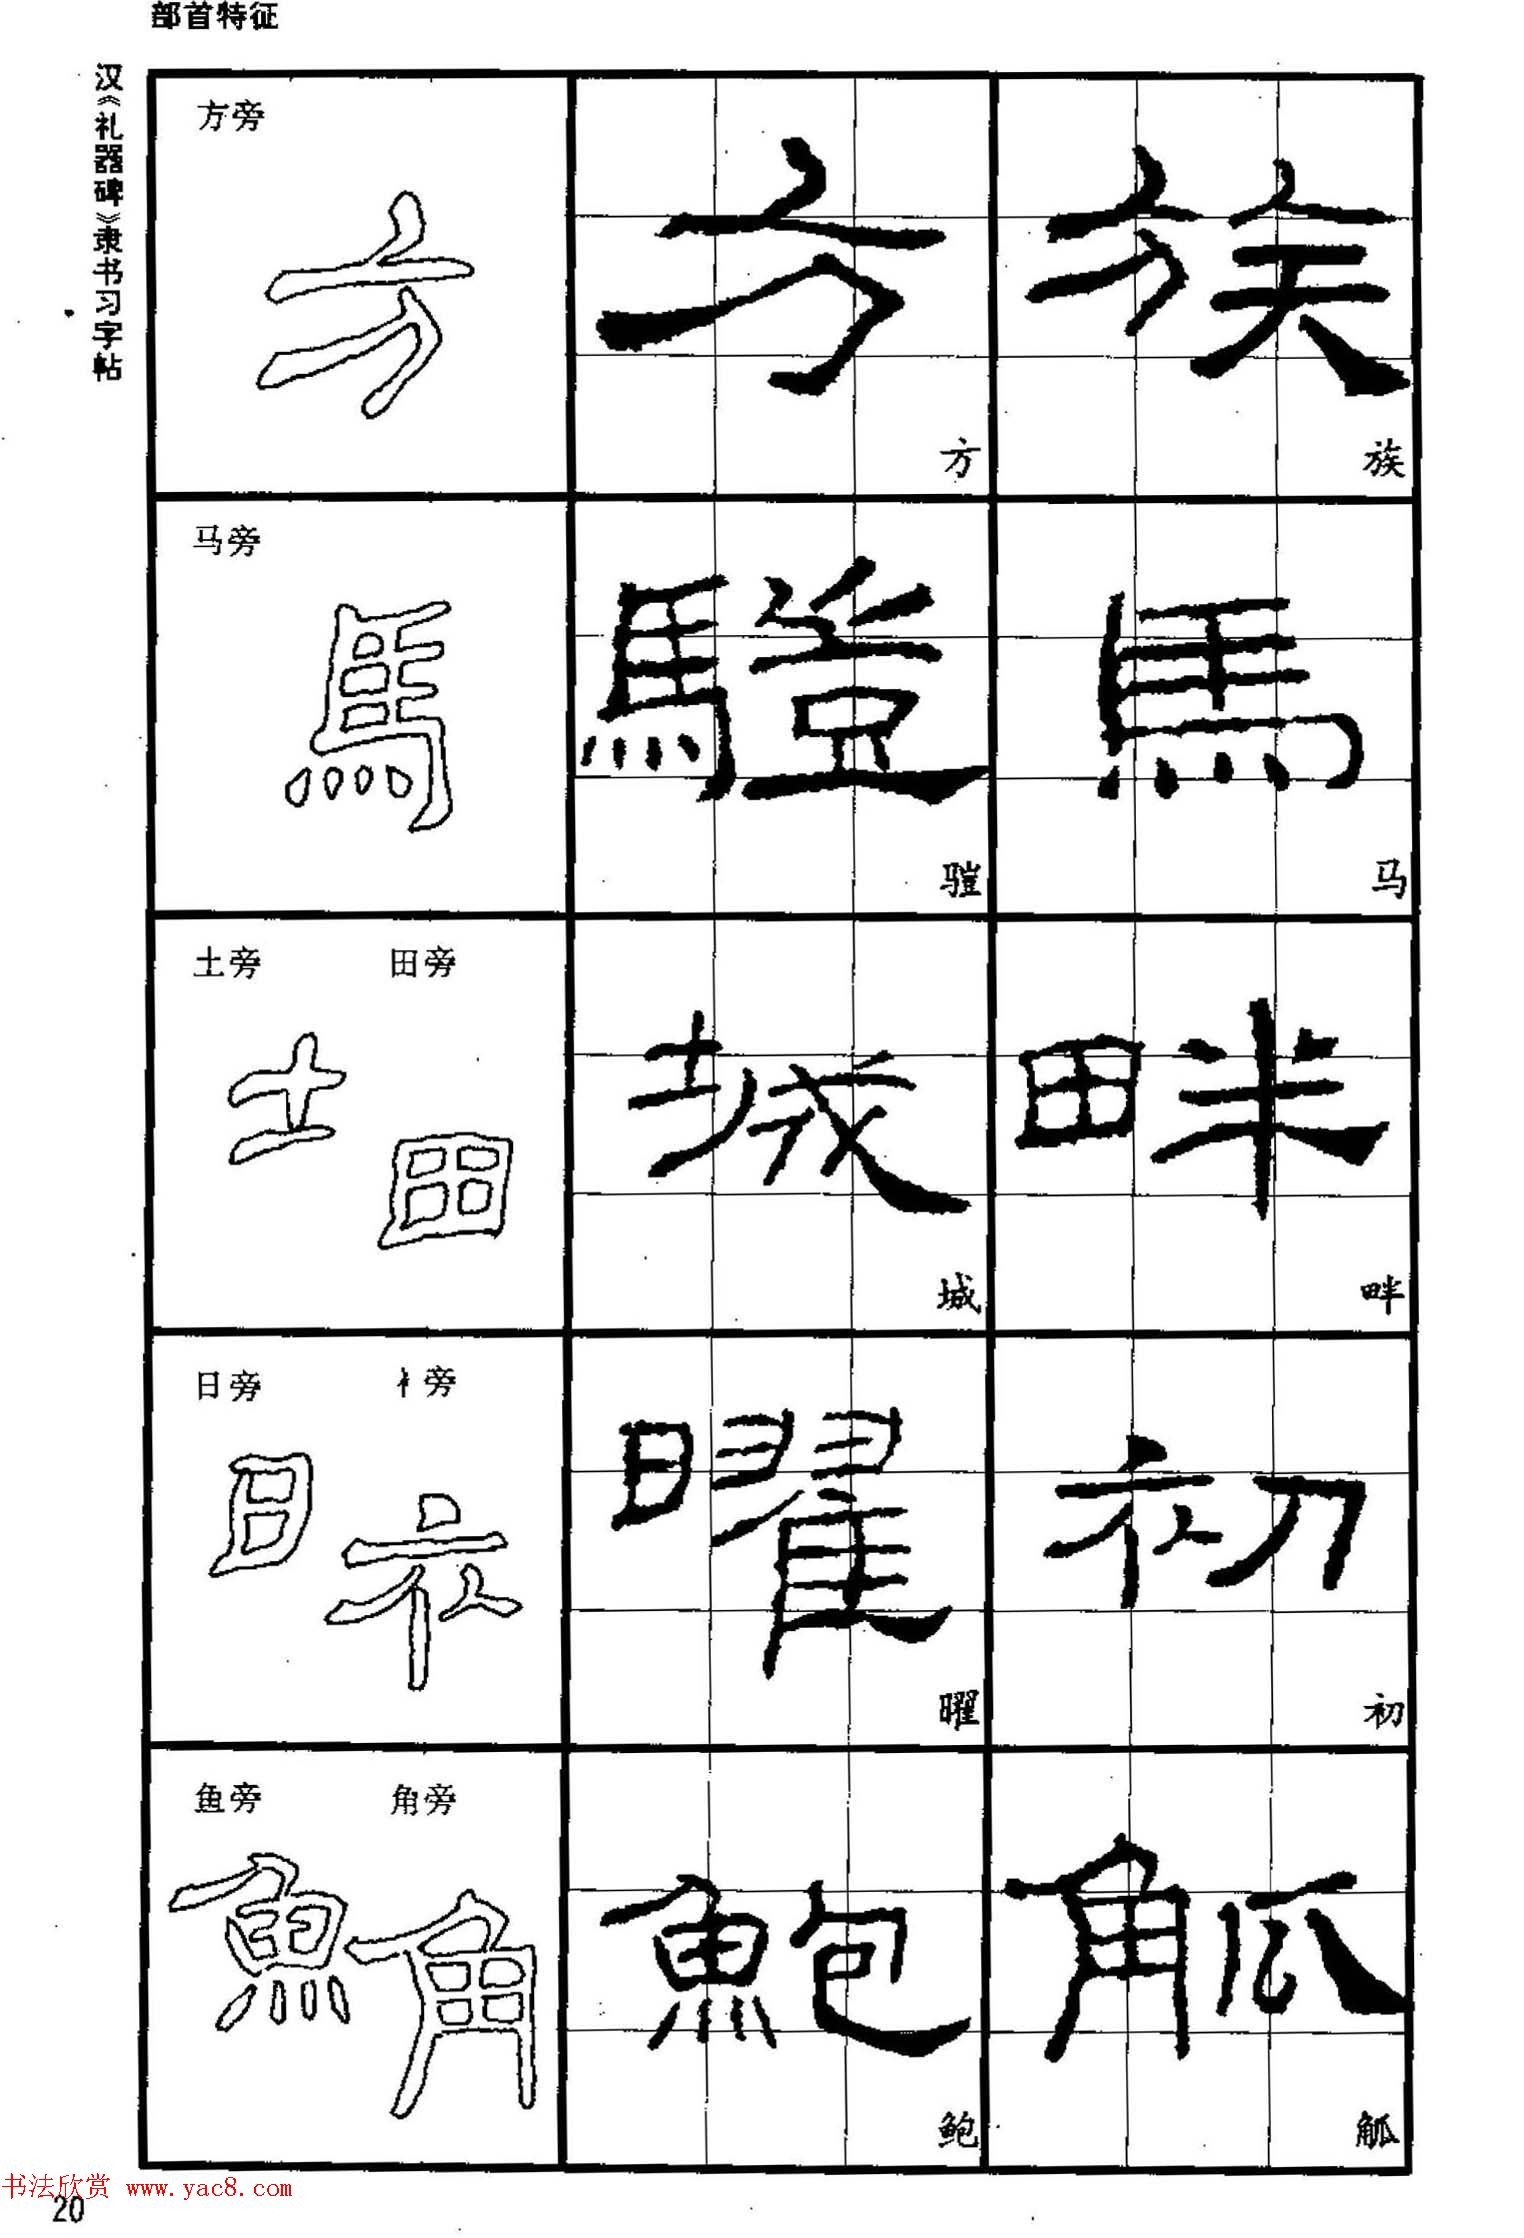 部首特征
汉《礼器碑》隶书习字帖
方旁
方 族
方
族
马旁
馬
騹 馬
马
土旁 田旁
土 田
城 畔
城
畔
日旁 衤旁
日 衤
曜 初
曜
初
鱼旁 角旁
魚 角
鮑 觚
鲍
觚
书法欣赏 www.yac8.com
20